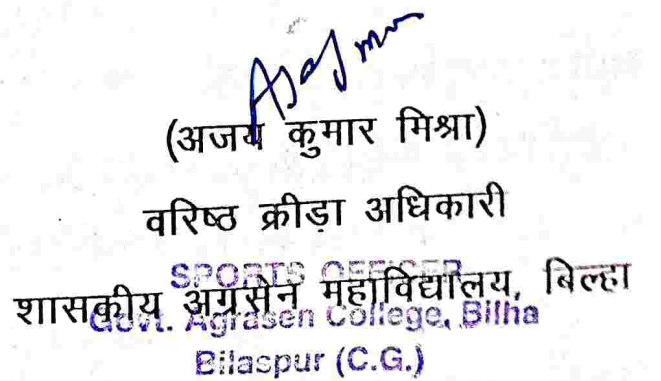 (अजय कुमार मिश्रा)
वरिष्ठ क्रीड़ा अधिकारी
SPORTS OFFICER
शासकीय अग्रसेन महाविद्यालय, बिल्हा
Govt. Agrasen College, Bilha
Bilaspur (C.G.)